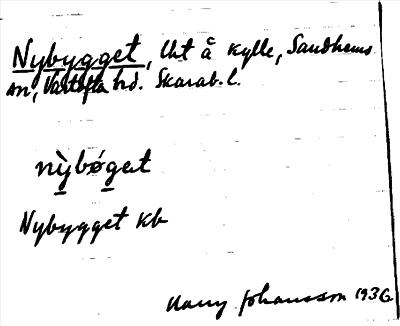 Nybygget, lht å Kylle, Sandhems
sn, Vartofta hd. Skarab. l.
nỳbǿgat
Nybygget kb
Harry Johansson 1936